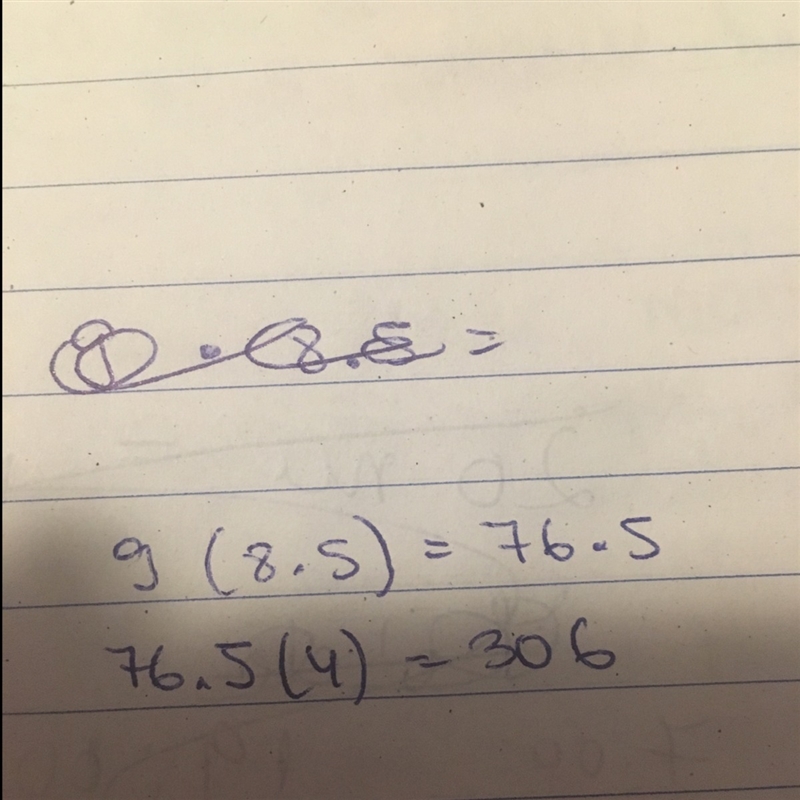 9 · 8.5 =
9 (8.5) = 76.5
76.5(4) = 306